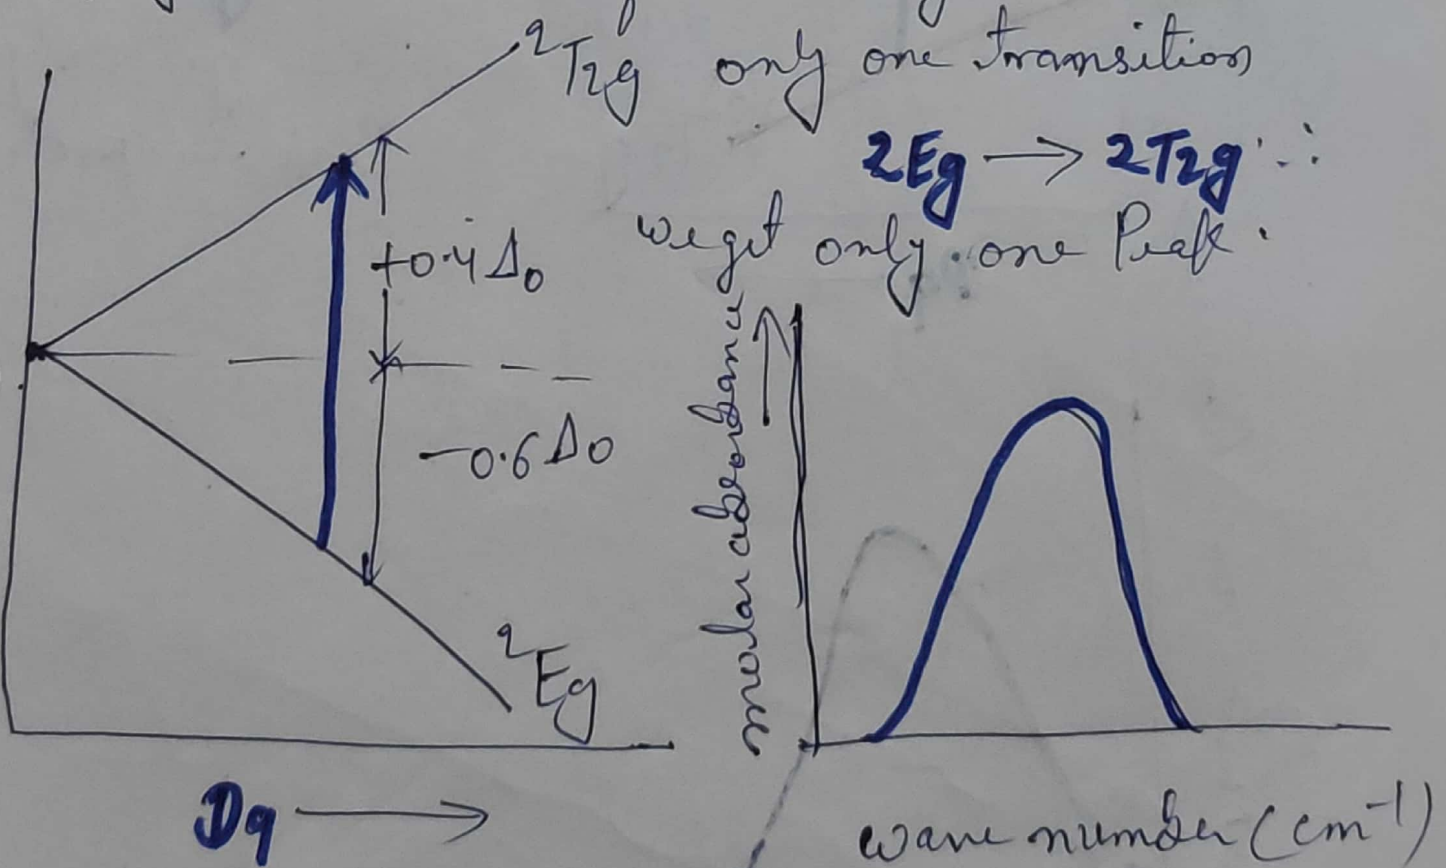 ²T2g only one transition
2Eg → 2T2g ∴
we get only one Peak.
+0.4Δ₀
-0.6Δ0
²Eg
Dq →
molar absorbance →
wave number (cm⁻¹)